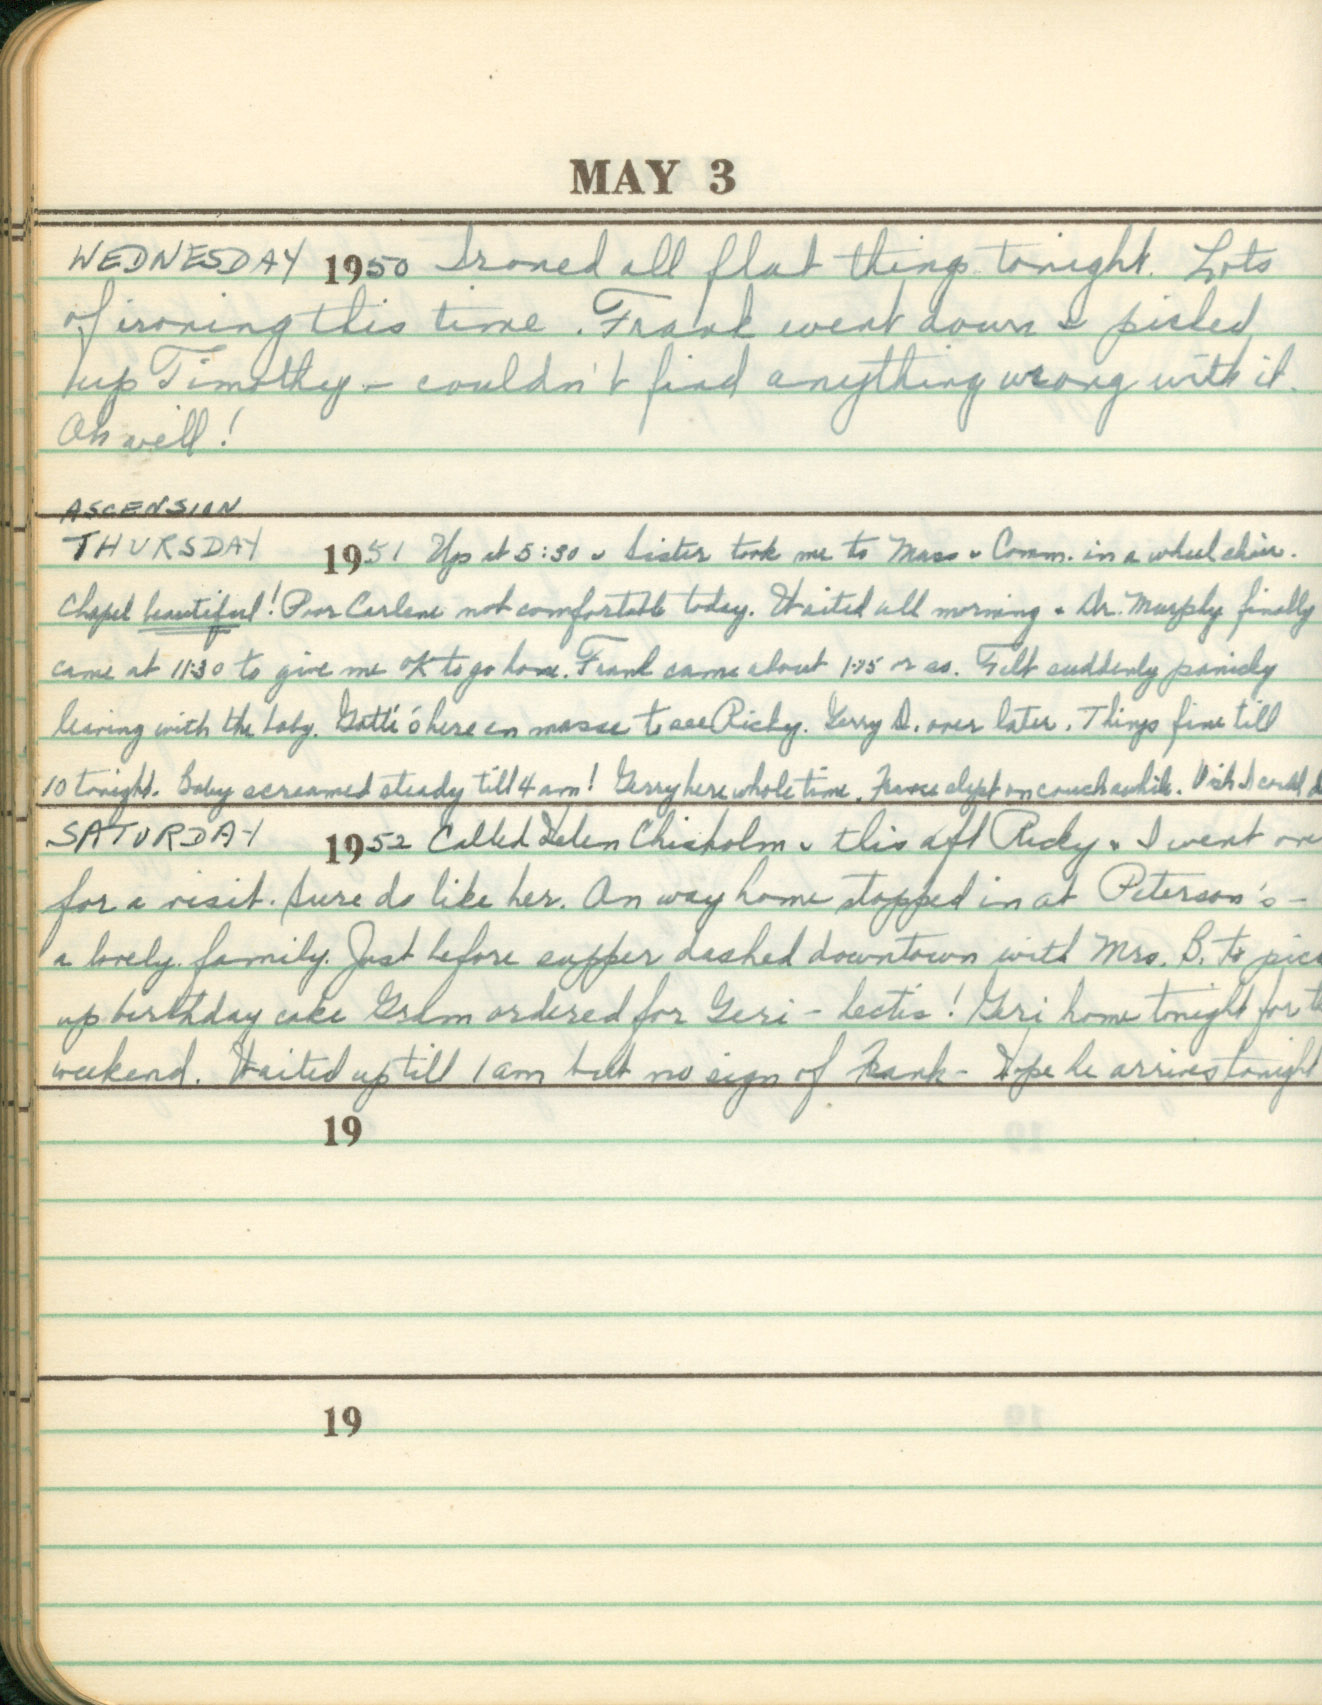 MAY 3
WEDNESDAY 1950 Ironed all flat things tonight. Lots
of ironing this time. Frank went down & picked
up Timothy - couldn't find anything wrong with it.
Oh well!
ASCENSION
THURSDAY 1951 Up at 5:30 & Sister took me to Mass & Comm. in a wheel chair.
Chapel beautiful! Poor Carlene not comfortable today. Waited all morning & Dr. Murphy finally
came at 11:30 to give me OK to go home. Frank came about 1:15 or so. Felt suddenly panicky
leaving with the baby. Gatti's here en masse to see Ricky. Gerry D. over later. Things fine till
10 tonight. Baby screamed steady till 4 am! Gerry here whole time. slept on couch awhile. Wish I could
SATURDAY 1952 Called Helen Chisholm & this aft Ricky & I went
for a visit. Sure do like her. On way home stopped in at Peterson's -
a lovely family. Just before supper dashed downtown with Mrs. B. to
up birthday cake Gram ordered for Geri - Geri home tonight for
weekend. Waited up till 1 am but no sign of Frank - Hope he arrives tonight
19
19